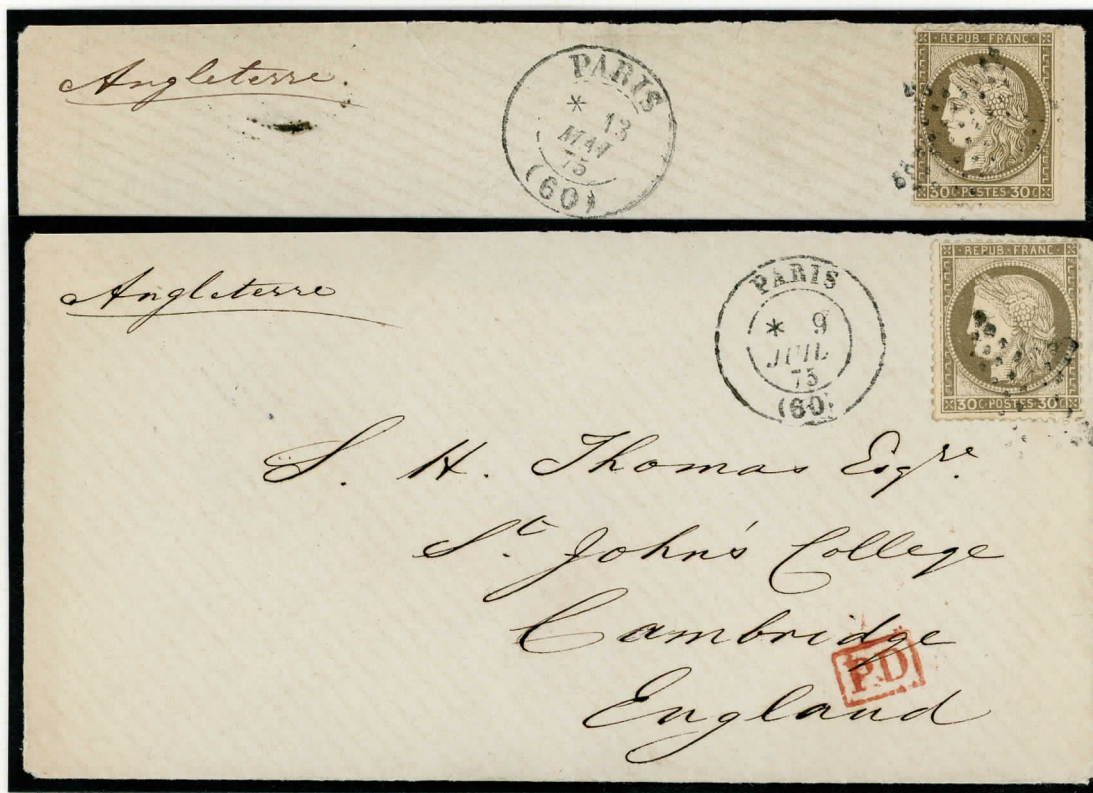 Angleterre.
PARIS
* 13
MAI
75
(60)
REPUB · FRANC ·
30C · POSTES · 30C
Angleterre
PARIS
* 9
JUIL
75
(60)
REPUB · FRANC ·
30C · POSTES · 30C
S. H. Thomas Esqre.
St. John's College
Cambridge
P.D
England